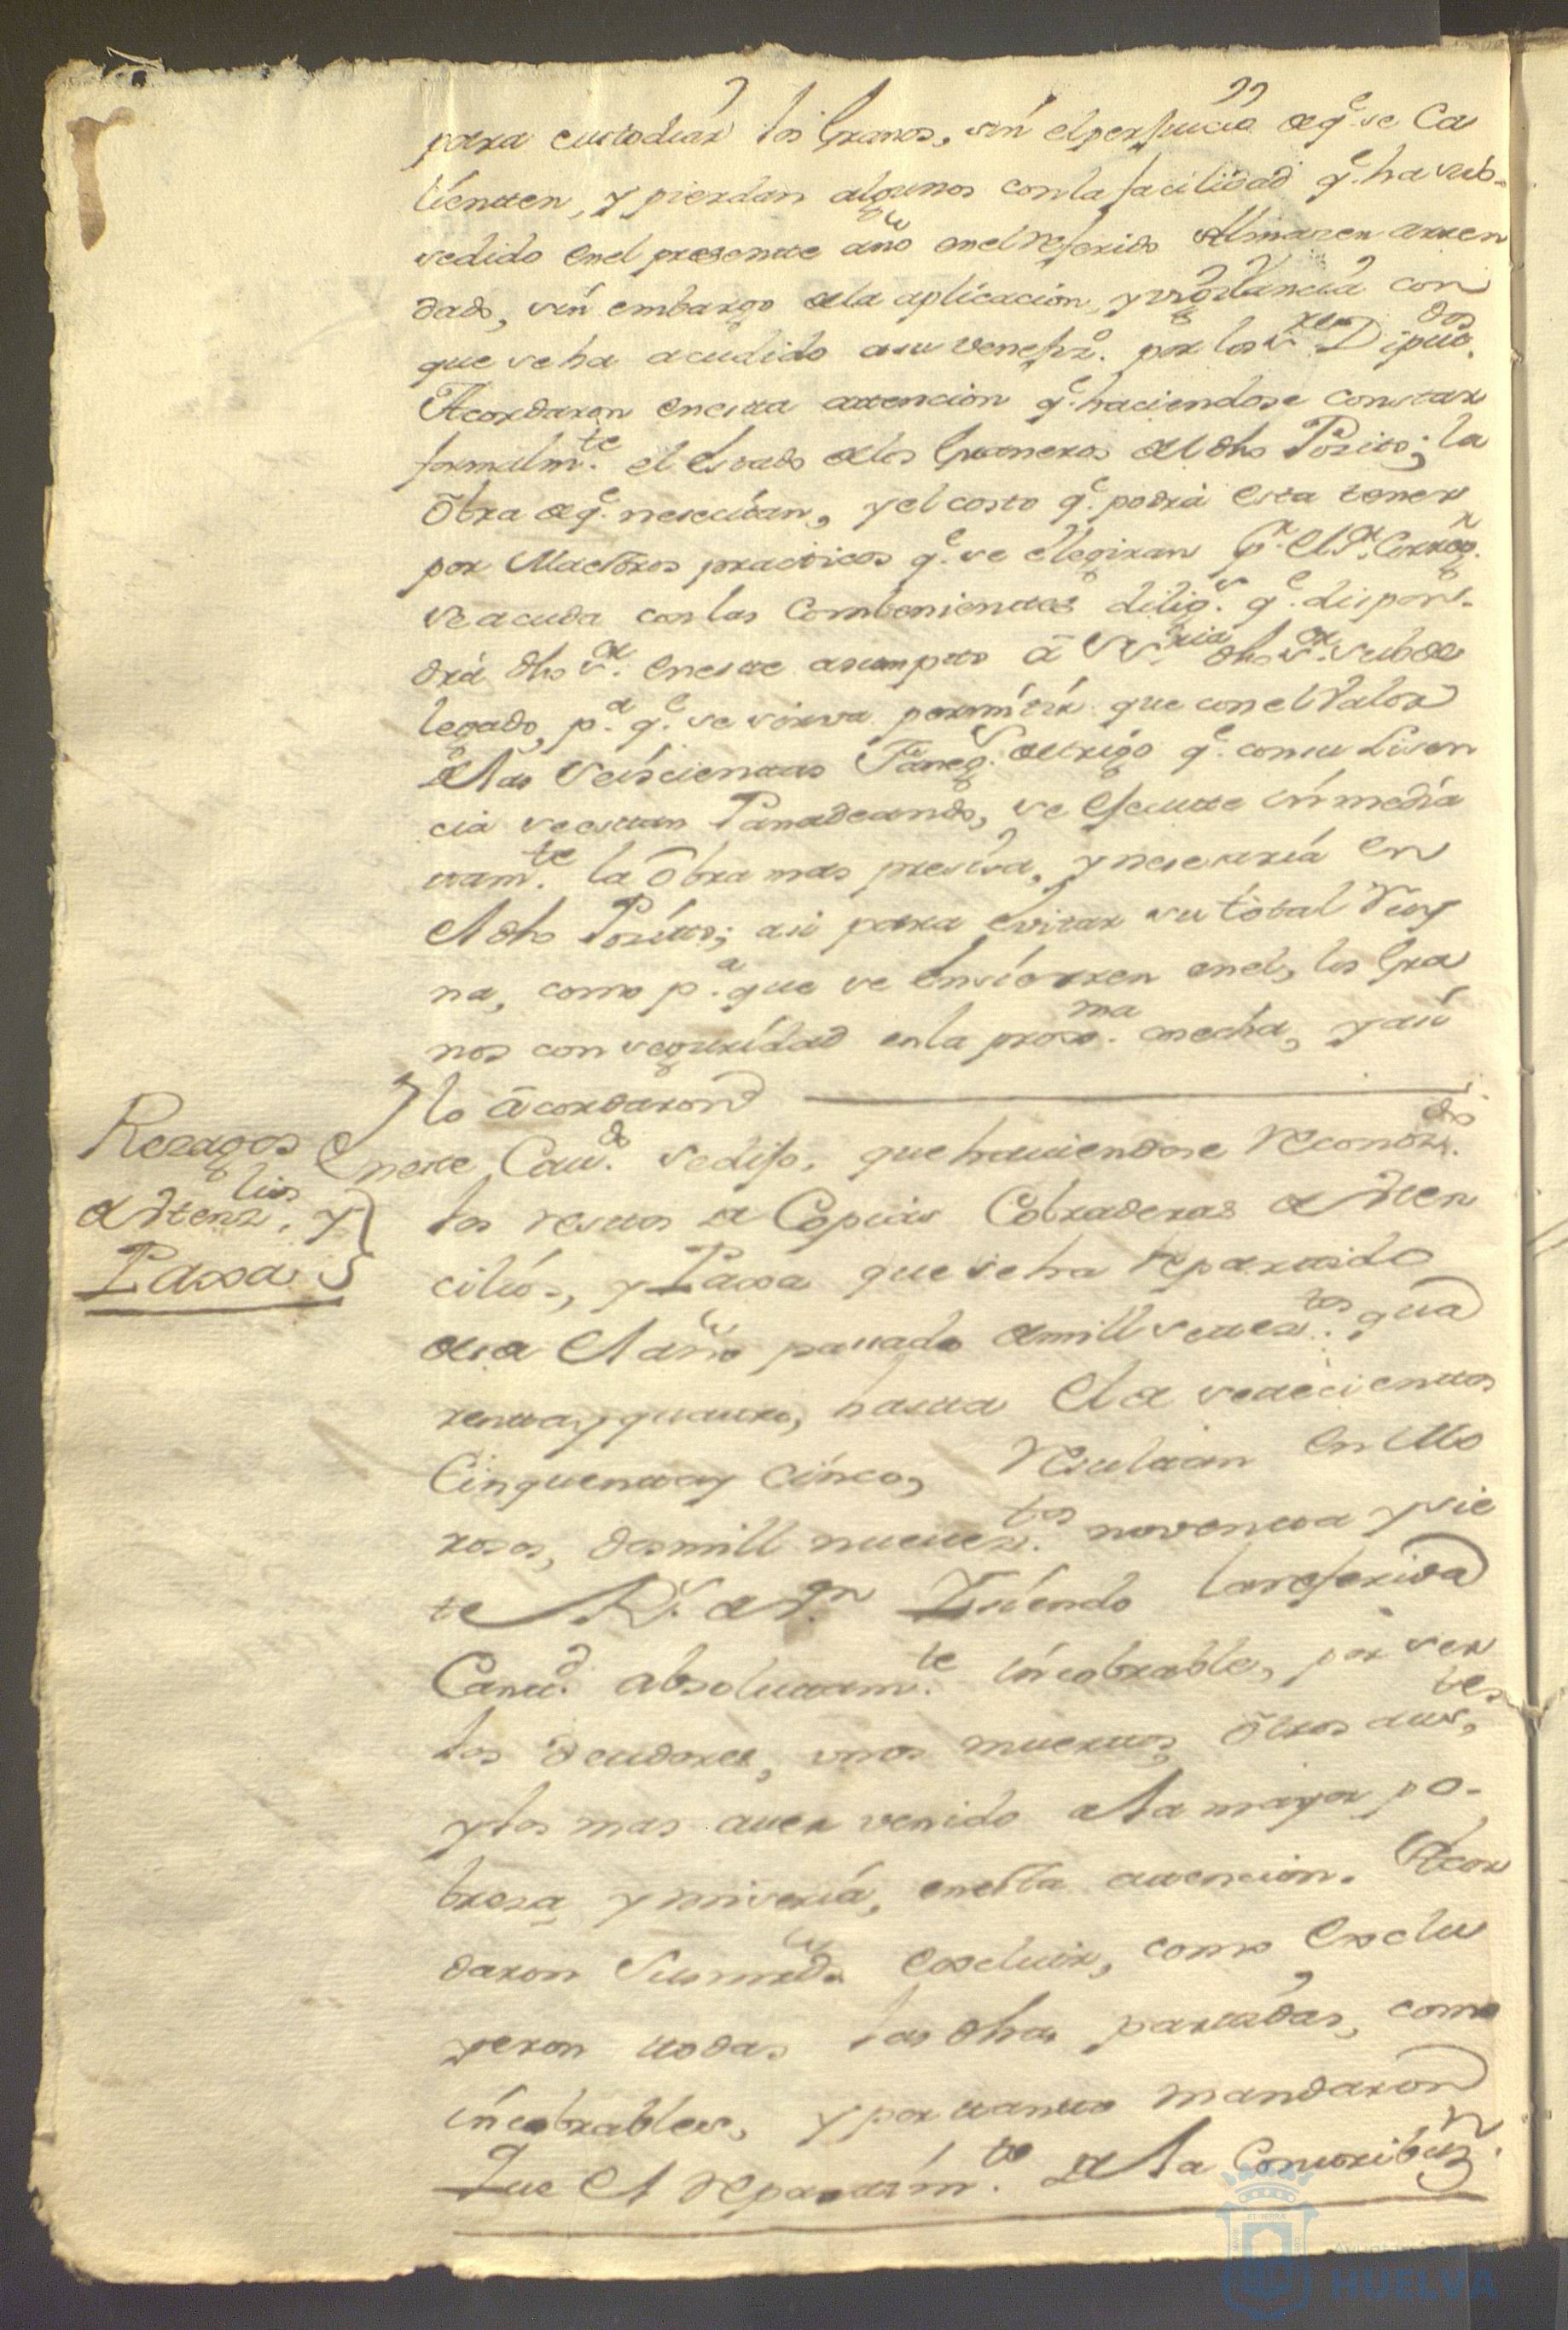 para custodiar los Granos, sin el perjuicio de q.e se Ca
lienten, y pierdan algunos con la facilidad q.e ha sub-
cedido en el presente año en el referido Almazen arren
dado, sin embargo de la aplicacion, y vigilancia con
que se ha acudido a su venefiz.o por los S.res Diput.dos
Acordaron en esta attencion q.e haciendose constar
formalm.te el estado de los Graneros del dho Posito; la
obra de q.e nesecitan, y el costo q.e podrá esta tener
por Maestros practicos q.e se elegiran p.r el S.r Correg.r
se acuda con las Combenientes dilig.s q.e dispon-
drá dho S.r en este asumpto á Su S.ria dho S.r Subde
legado, p.a q.e se sirva permitir que con el Valor
de las Seiscientas Faneg.s de trigo q.e con su Lisen
cia se estan Panadeando, se ejecute inmedia
tam.te la obra mas presisa, y nesesaria en
el dho Posito; asi para evitar su total Ruy
na, como p.a que se ensierren en el, los Gra
nos con seguridad en la prox.ma cosecha, y asi
lo acordaron
Rezagos
de Utenz.lios y
Paxa
En este Cav.do se dijo, que haviendose reconoz.do
los restos de Copias Cobraderas de Uten
cilios, y Paxa que se ha repartido
desde el año pasado de mill setez.tos qua
renta y quatro, hasta el de setecientos
Cinquenta y cinco, resultan en
dos mill nuevez.tos noventa y sie
te R.s de V.n Y siendo la referida
Cantt.d absolutam.te incobrable, por ser
los deudores, unos muertos, otros aus.tes
y los mas aver venido a la mayor po-
breza y miseria, en esta attencion. Acor
daron Sus mrds. excluir, como exclu
yeron todas las dhas partidas, como
incobrables, y por tanto mandaron
Que el repartim.to de la Contribuz.n
AYUNTAMIENTO DE
HUELVA